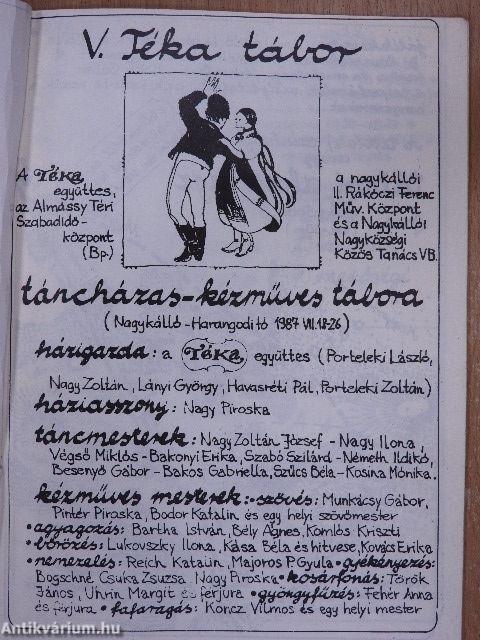 V. Téka tábor
A Téka
együttes,
az Almássy Téri
Szabadidő-
központ
(Bp.)
a nagykállói
II. Rákóczi Ferenc
Műv. Központ
és a Nagykállói
Nagyközségi
Közös Tanács VB.
táncházas-kézműves tábora
(Nagykálló-Harangodi tó 1987 VII.18-26)
házigazda: a Téka együttes (Porteleki László,
Nagy Zoltán, Lányi György, Havasréti Pál, Porteleki Zoltán)
háziasszony: Nagy Piroska
táncmesterek: Nagy Zoltán József - Nagy Ilona,
Végső Miklós - Bakonyi Erika, Szabó Szilárd - Németh Ildikó,
Besenyő Gábor - Bakos Gabriella, Szűcs Béla - Kosina Mónika.
kézműves mesterek: •szövés: Munkácsy Gábor,
Pintér Piroska, Bodor Katalin és egy helyi szövőmester
•agyagozás: Bartha István, Bély Ágnes, Komlós Kriszti
•bőrözés: Lukovszky Ilona, Kása Béla és hitvese, Kovács Erika
•nemezelés: Reich Katalin, Majoros P. Gyula •gyékényezés:
Bogschné Csuka Zsuzsa, Nagy Piroska •kosárfonás: Török
János, Uhrin Margit és férjura •gyöngyfűzés: Fehér Anna
és férjura •fafaragás: Koncz Vilmos és egy helyi mester
Antikvárium.hu